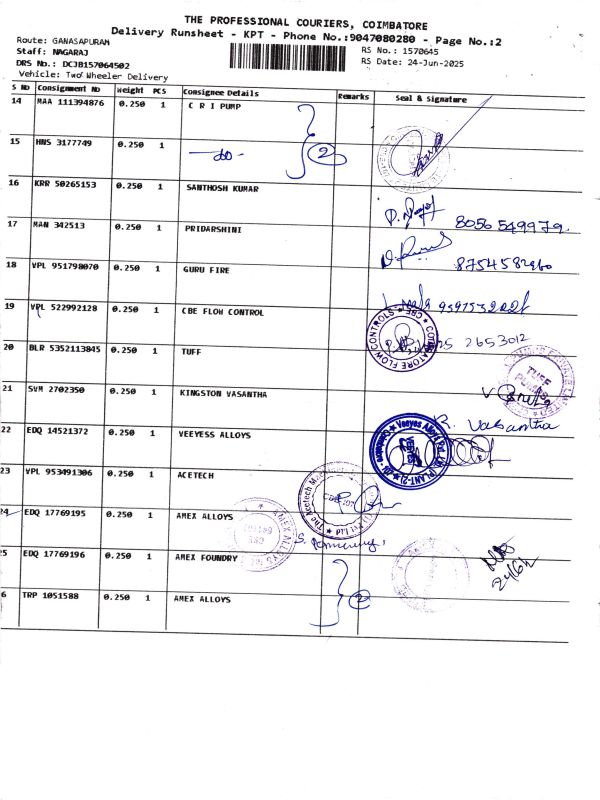 THE PROFESSIONAL COURIERS, COIMBATORE
Delivery Runsheet - KPT - Phone No.:9047080280 - Page No.:2
Route: GANASAPURAM
RS No.: 1570645
Staff: NAGARAJ
RS Date: 24-Jun-2025
DRS No.: DCJB157064502
Vehicle: Two Wheeler Delivery
S No Consignment No Weight PCS Consignee Details Remarks Seal & Signature
14 MAA 111394876 0.250 1 C R I PUMP
15 HNS 3177749 0.250 1 -do- 2
16 KRR 50265153 0.250 1 SANTHOSH KUMAR
17 MAN 342513 0.250 1 PRIDARSHINI 8056549979
18 VPL 951798070 0.250 1 GURU FIRE
19 VPL 522992128 0.250 1 CBE FLOW CONTROL
COIMBATORE FLOW CONTROLS CBE
2653012
20 BLR 5352113845 0.250 1 TUFF
TUFF PUMPS
21 SVM 2702350 0.250 1 KINGSTON VASANTHA
R. Vasantha
22 EDQ 14521372 0.250 1 VEEYESS ALLOYS
Veeyes Alloys Pvt. Ltd. (PLANT-2) Coimbatore
23 VPL 953491306 0.250 1 ACETECH
The Acetech
24 EDQ 17769195 0.250 1 AMEX ALLOYS
AMEX ALLOYS
25 EDQ 17769196 0.250 1 AMEX FOUNDRY
24/6/
6 TRP 1051588 0.250 1 AMEX ALLOYS 2